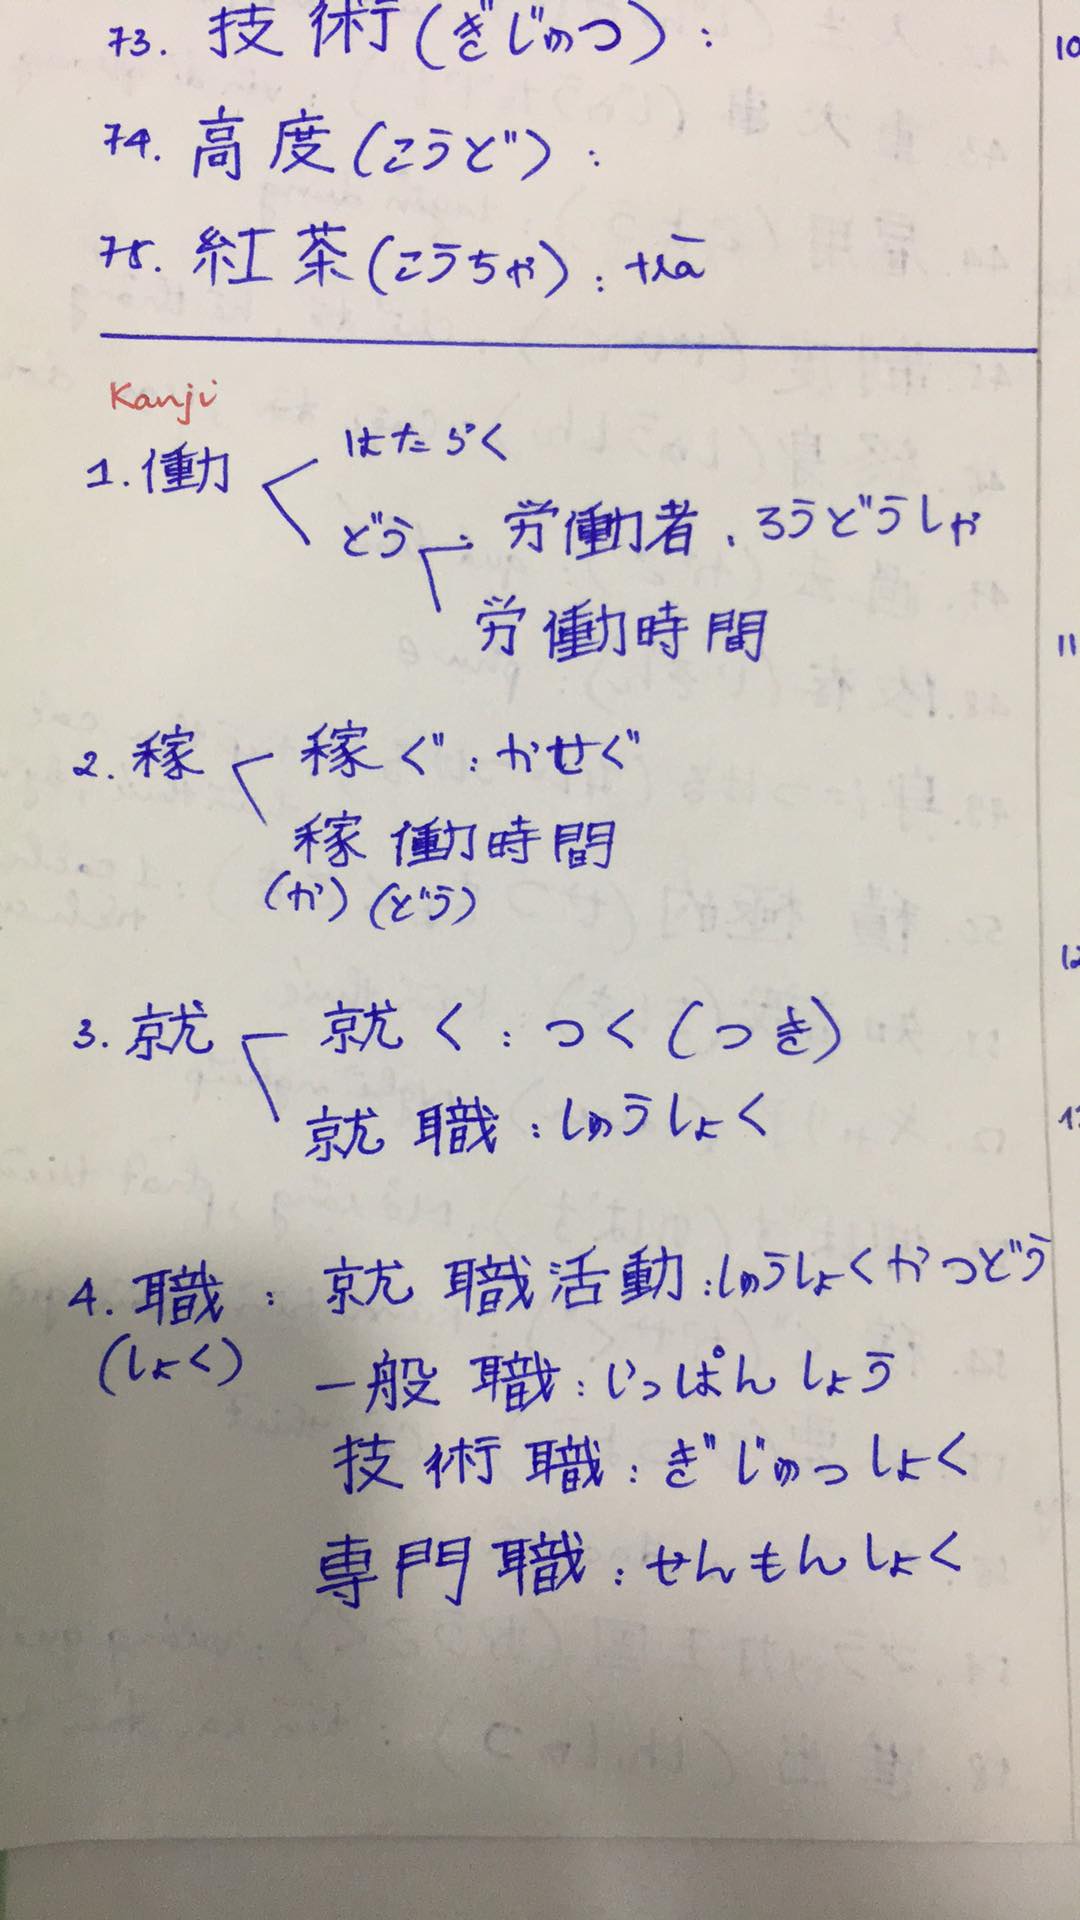 73. 技術(ぎじゅつ):
74. 高度(こうど):
75. 紅茶(こうちゃ): trà
Kanji
1. 働 はたらく
どう : 労働者 . ろうどうしゃ
労働時間
2. 稼 稼ぐ: かせぐ
稼働時間
(か) (どう)
3. 就 就く: つく(つき)
就職: しゅうしょく
4. 職: 就職活動: しゅうしょくかつどう
(しょく)
一般職: いっぱんしょう
技術職: ぎじゅっしょく
専門職: せんもんしょく
10
11
12